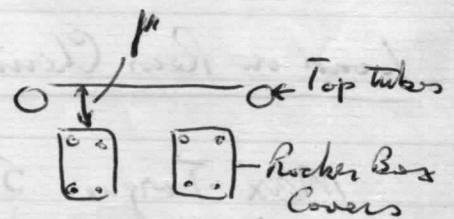 1"
Top tubes
Rocker Box
Covers